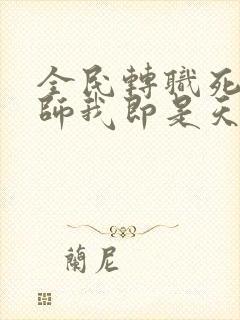 全民轉職死
師我即是天
蘭尼